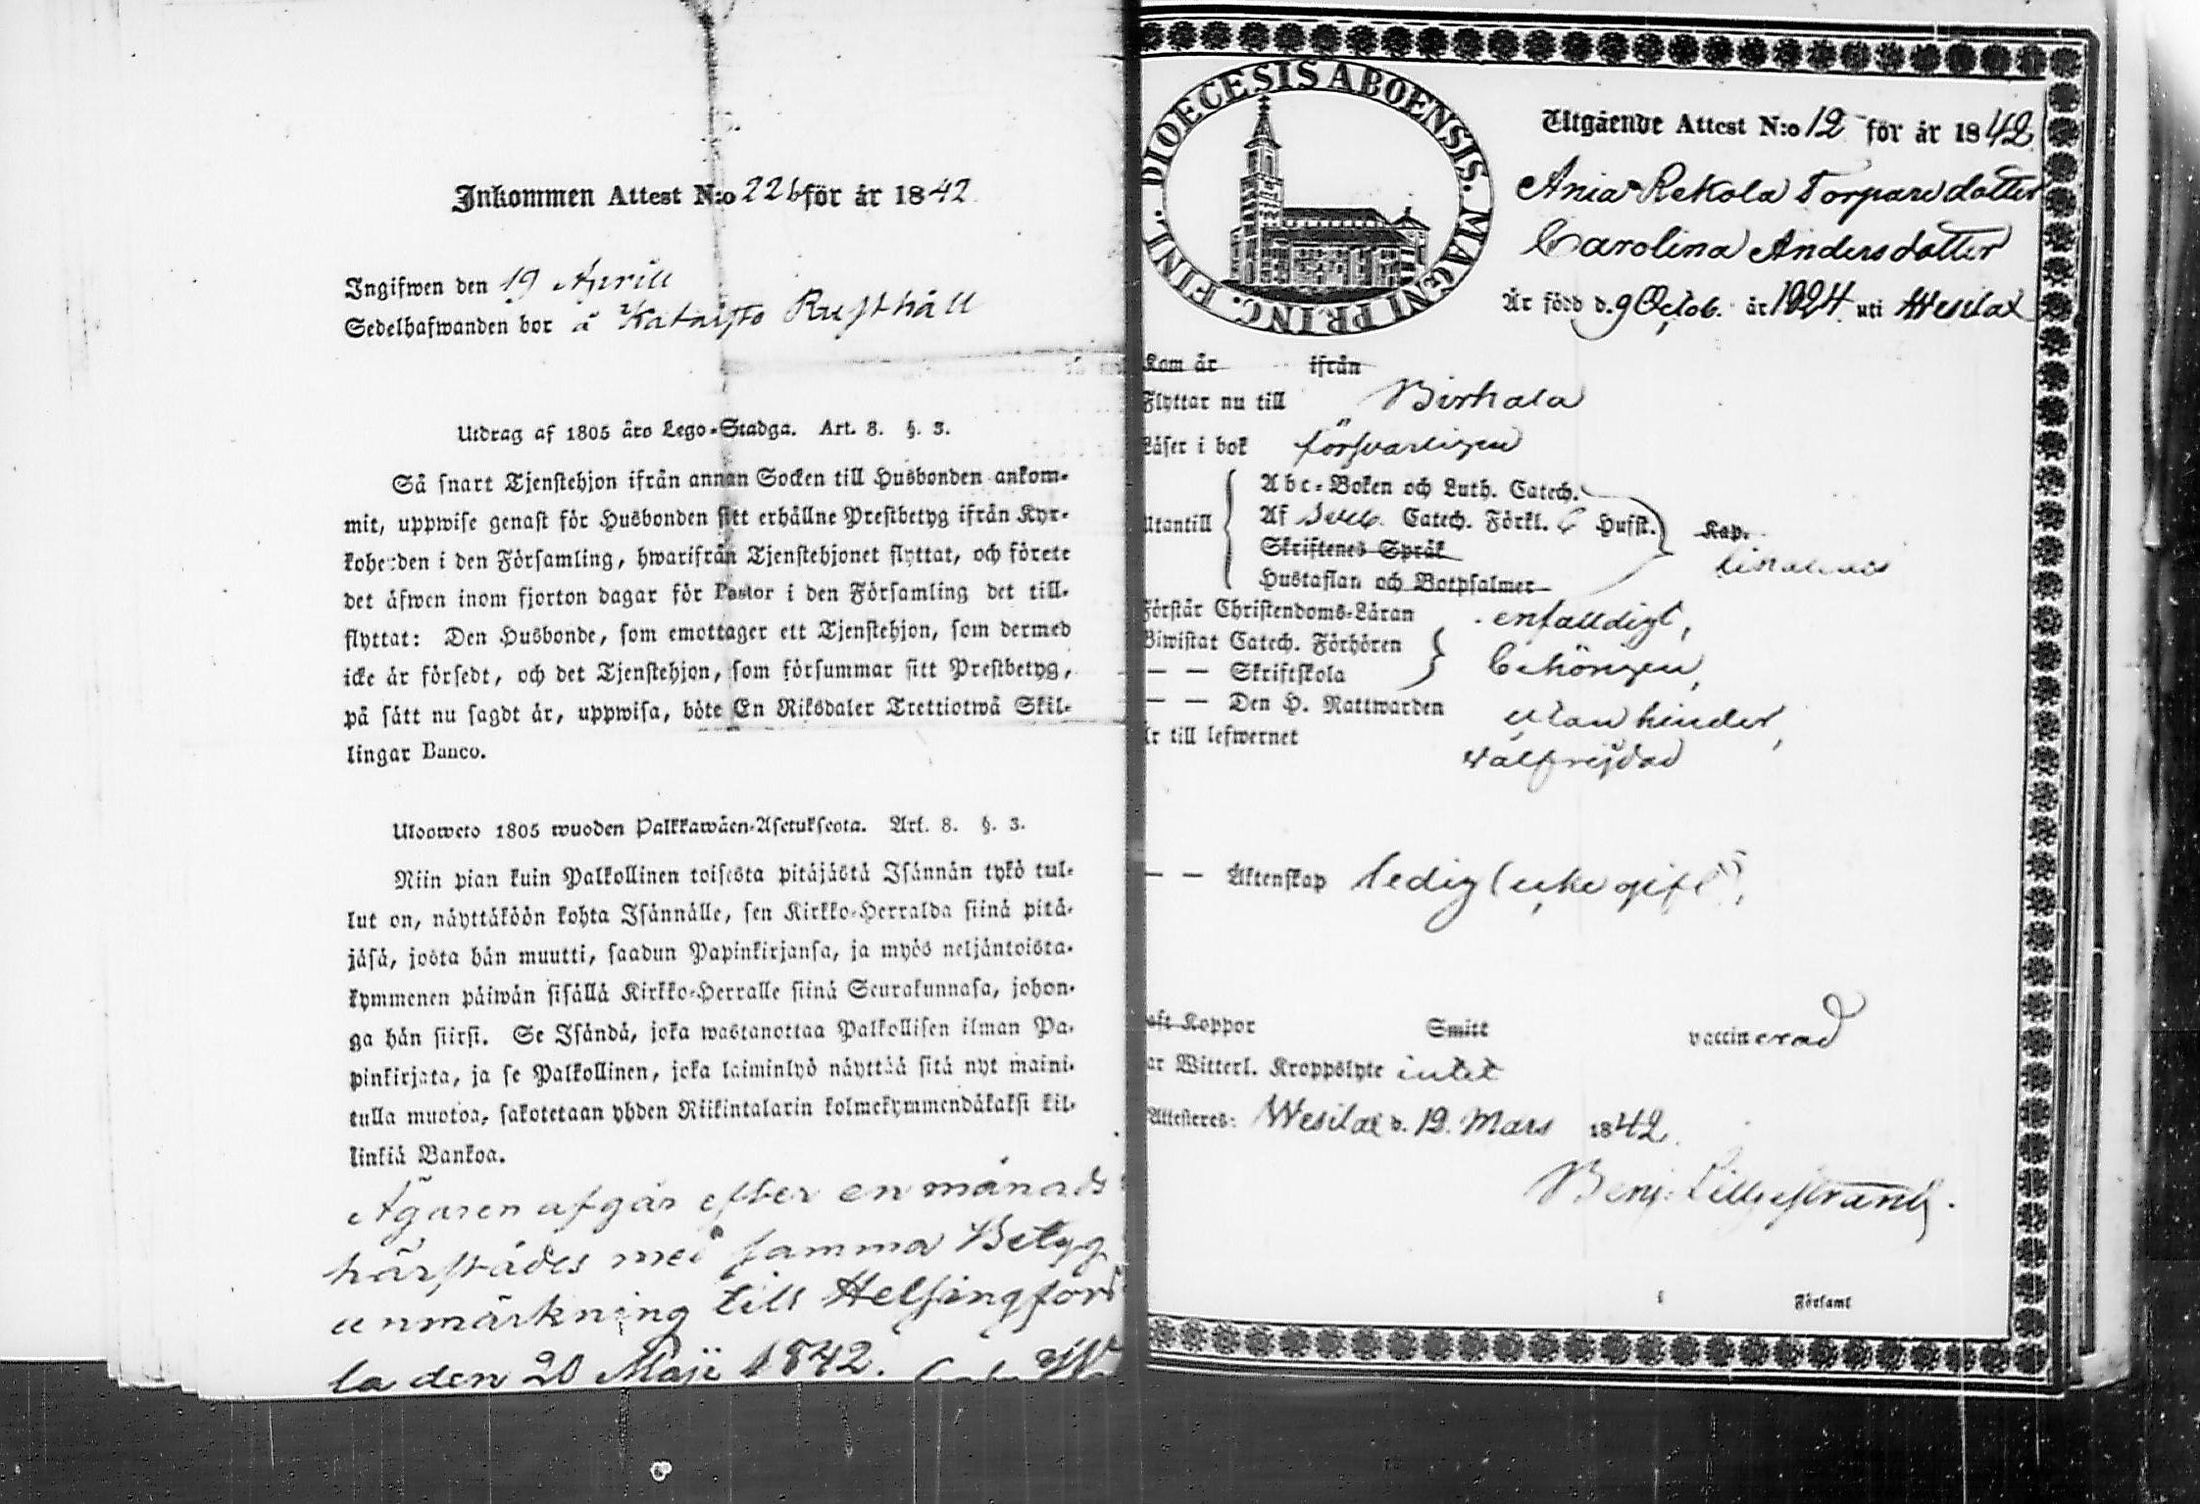 Inkommen Attest N:o 226 för år 1842
Ingifwen den 19 Aprill
Sedelhafwanden bor å Katajsto Rusthåll
Utdrag af 1805 års Lego-Stadga. Art. 8. §. 3.
Så snart Tjenstehjon ifrån annan Socken till Husbonden ankom-
mit, uppwise genast för Husbonden sitt erhållne Prestbetyg ifrån Kyr-
koherden i den Församling, hwarifrån Tjenstehjonet flyttat, och förete
det äfwen inom fjorton dagar för Pastor i den Församling det till-
flyttat: Den Husbonde, som emottager ett Tjenstehjon, som dermed
icke är försedt, och det Tjenstehjon, som försummar sitt Prestbetyg,
på sätt nu sagdt är, uppwisa, böte En Riksdaler Trettiotwå Skil-
lingar Banco.
Ulosweto 1805 wuoden Palkkawäen-Asetuksesta. Art. 8. §. 3.
Niin pian kuin Palkollinen toisesta pitäjästä Isännän tykö tul-
lut on, näyttäköön kohta Isännälle, sen Kirkko-Herralda siinä pitä-
jäsä, josta hän muutti, saadun Papinkirjansa, ja myös neljäntoista-
kymmenen päiwän sisällä Kirkko-Herralle siinä Seurakunnasa, johon-
ga hän siirsi. Se Isändä, joka wastanottaa Palkollisen ilman Pa-
pinkirjata, ja se Palkollinen, joka laiminlyö näyttää sitä nyt maini-
tulla muotoa, sakotetaan yhden Riikintalarin kolmekymmendäkaksi kil-
linkiä Bankoa.
Ägaren afgår efter en månads
härstädes med samma Betyg
anmärkning till Helsingfors
la den 20 Maji 1842.
DIOECESIS ABOENSIS. MAGNI PRINC. FINL.
Utgående Attest N:o 12 för år 1842
Ania Rekola Torparedotter
Carolina Andersdotter
Är född d. 9 Octob. år 1824 uti Wesilax
Kom år ifrån
Flyttar nu till Birkala
Läser i bok försvarligen
Utantill
Abc-Boken och Luth. Catech.
Af Catech. Förkl. Husst. Kap.
Skriftenes Språk
Hustaflan och Botpsalmer
Förstår Christendoms-Läran enfalldigt,
Biwistat Catech. Förhören
— — Skriftskola behörigen,
— — Den H. Nattwarden utan hinder,
Är till lefwernet wälfrejdad
— — Äktenskap ledig (icke gift),
Haft Koppor Smitt vaccinerad
Har Witterl. Kroppslyte intet
Attesteres: Wesilax d. 12 Mars 1842.
Benj. Lilljestrand.
Församl